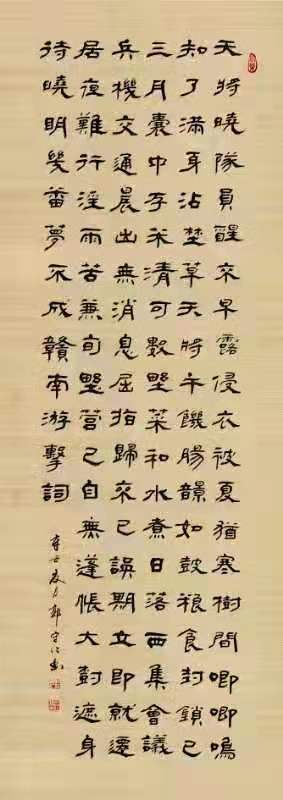 天將曉隊員醒來早露侵衣被夏猶寒樹間唧唧鳴
知了滿身沾埜草天將午饑腸響如鼓糧食封鎖已
三月囊中存米清可數埜菜和水煮日落西集會議
兵機交通晨出無消息屈指歸來已誤期立即就遷
居夜難行淫雨苦兼旬埜營已自無蓬帳大樹遮身
待曉明幾番夢不成贛南游擊詞
夏月郭守書